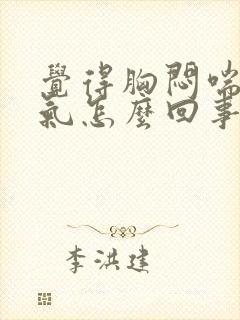 覺得胸悶喘
氣怎麼回事
李洪建